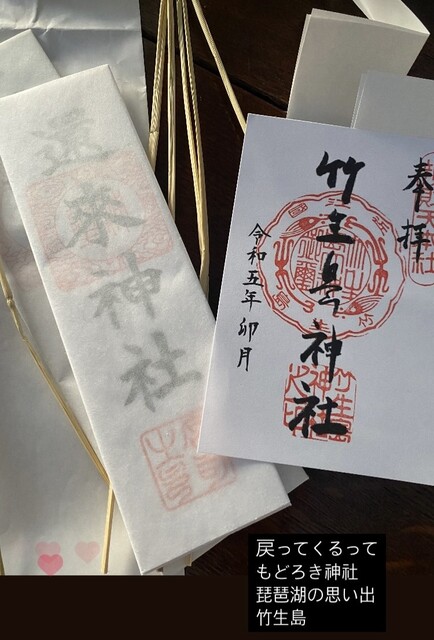 還來神社
奉拝
竹生島神社
令和五年 卯月
竹生島
戻ってくるって
もどろき神社
琵琶湖の思い出
竹生島